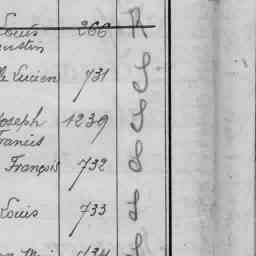 Louis 266 R
ustin
le Lucien 731 S
Joseph 1239 S
Francis
François 732 S
Louis 733 S